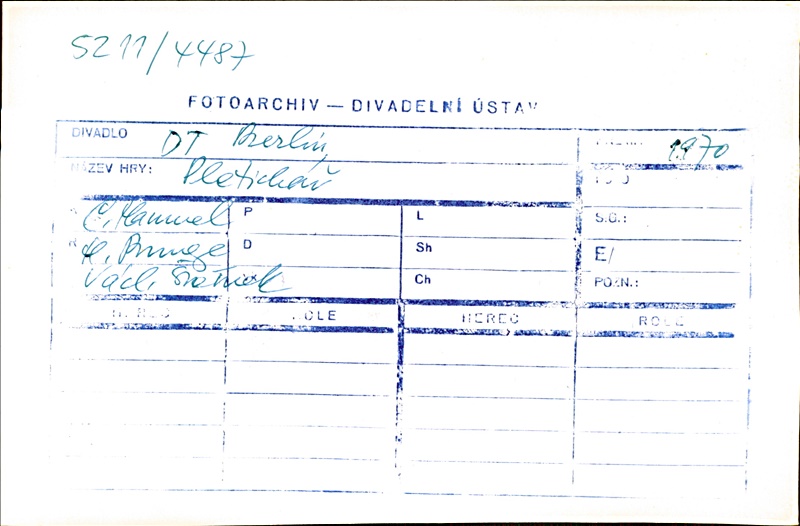 5211/4487
FOTOARCHIV — DIVADELNÍ ÚSTAV
DIVADLO DT Berlín, 1970
NÁZEV HRY: Pletichář
C. Hammel P L S.G.:
R H. Bunge D Sh E/
Václ. Ch POZN.:
HEREC ROLE HEREC ROLE